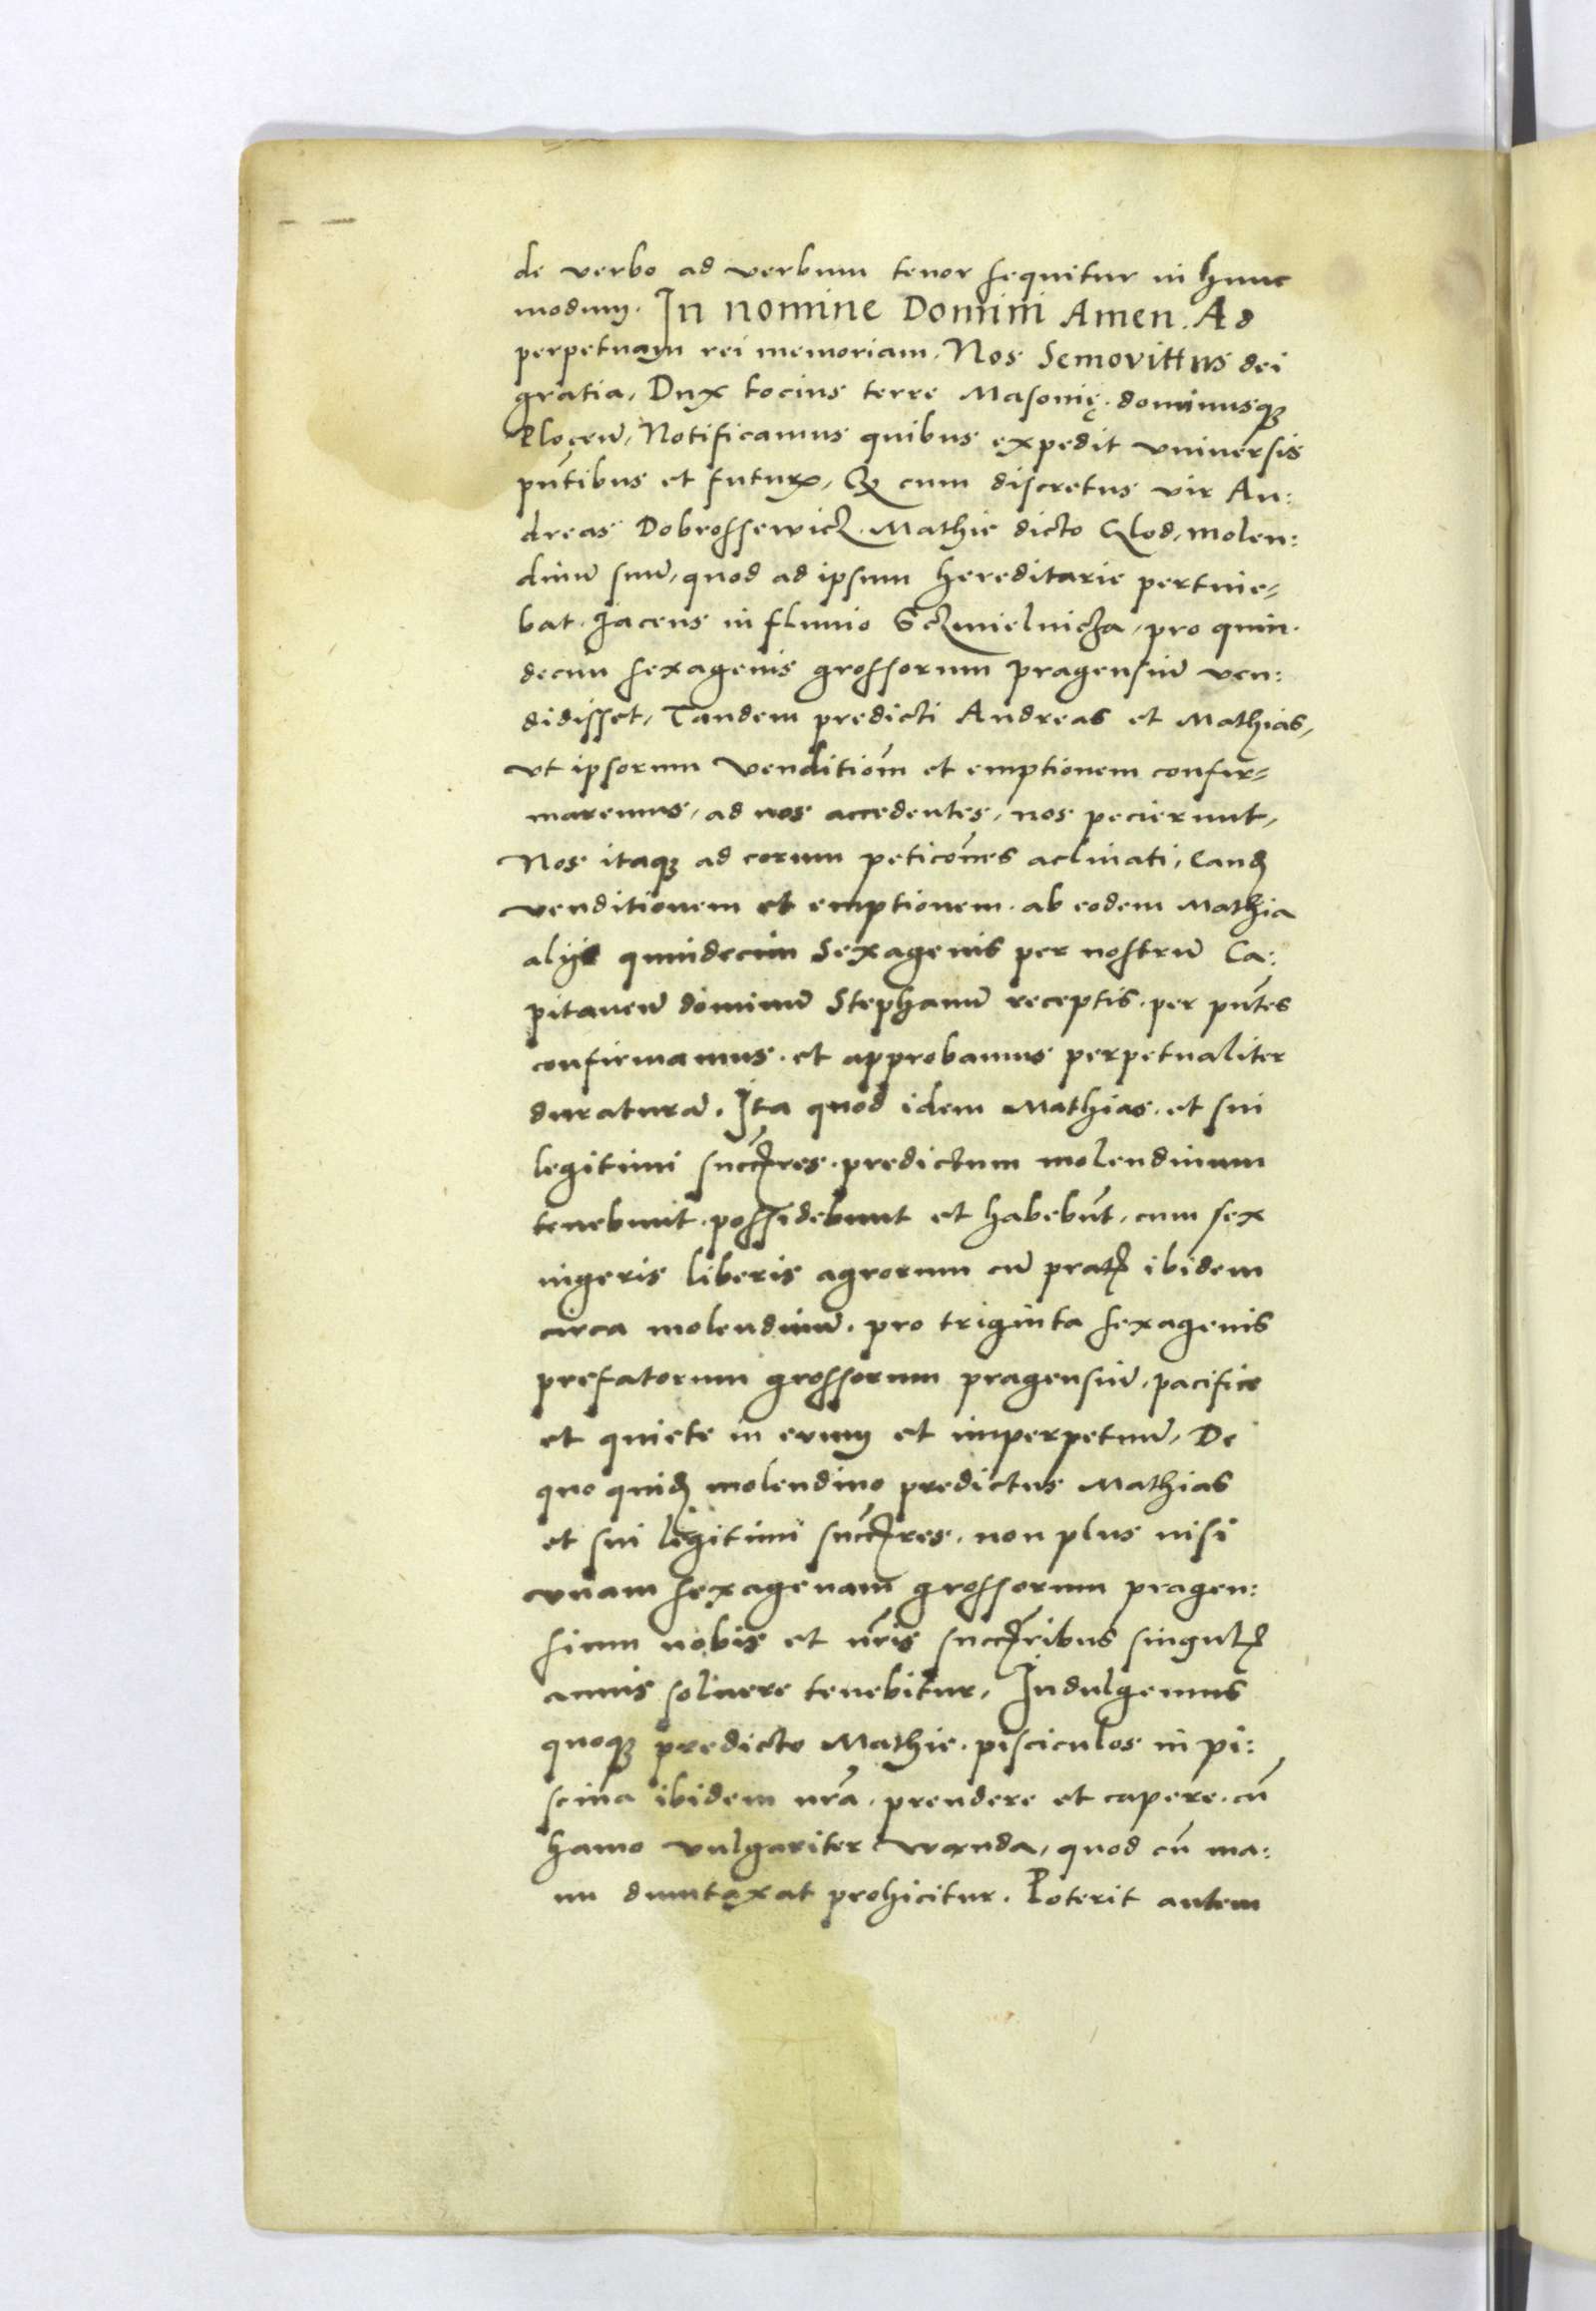 de verbo ad verbum tenor sequitur in hunc
modum. In nomine Domini Amen. Ad
perpetuam rei memoriam, Nos Semovittus dei
gratia, Dux tocius terre Masovię. dominusqꝫ
Plocen̄, Notificamus quibus expedit vniuersis
pn̄tibus et futurꝭ, Qꝫ cum discretus vir An:
dreas Dobrossewicz. Mathie dicto Clod, molen:
dinū suū, quod ad ipsum hereditarie pertine-
bat. Jacens in fluuio Sczmielnicza, pro quin.
decim sexagenis grossorum pragensiū ven:
didisset, Tandem predicti Andreas et Mathias,
vt ipsorum venditiōm et emptionem confir-
maremus, ad nos accedentes, nos pecierunt,
Nos itaqꝫ ad eorum peticōnes aclinati, eandꝫ
venditionem et emptionem. ab eodem Mathia
alijs quindecim Sexagenis per nostrū Ca:
pitaneū dominū Stephanū receptis. per pn̄tes
confirmamus. et approbamus perpetualiter
duraturā. Ita quod idem Mathias. et sui
legitimi succꝭres. predictum molendinum
tenebunt. possidebunt et habebūt, cum sex
iugeris liberis agrorum cū pratꝭ ibidem
circa molendinū. pro triginta sexagenis
prefatorum grossorum pragensiū, pacifice
et quiete in euum et imperpetuū, De
quo quidꝫ molendino predictus Mathias
et sui legitimi succꝭres. non plus nisi
vnam sexagenam grossorum pragen:
sium nobis et nr̄is succꝭribus singulꝭ
annis soluere tenebitur, Indulgemus
quoqꝫ predicto Mathie. pisciculos in pi:
scina ibidem nr̄a. prendere et capere. cū
hamo vulgariter wanda, quod cū ma:
nu dumtaxat prohicitur. Poterit autem